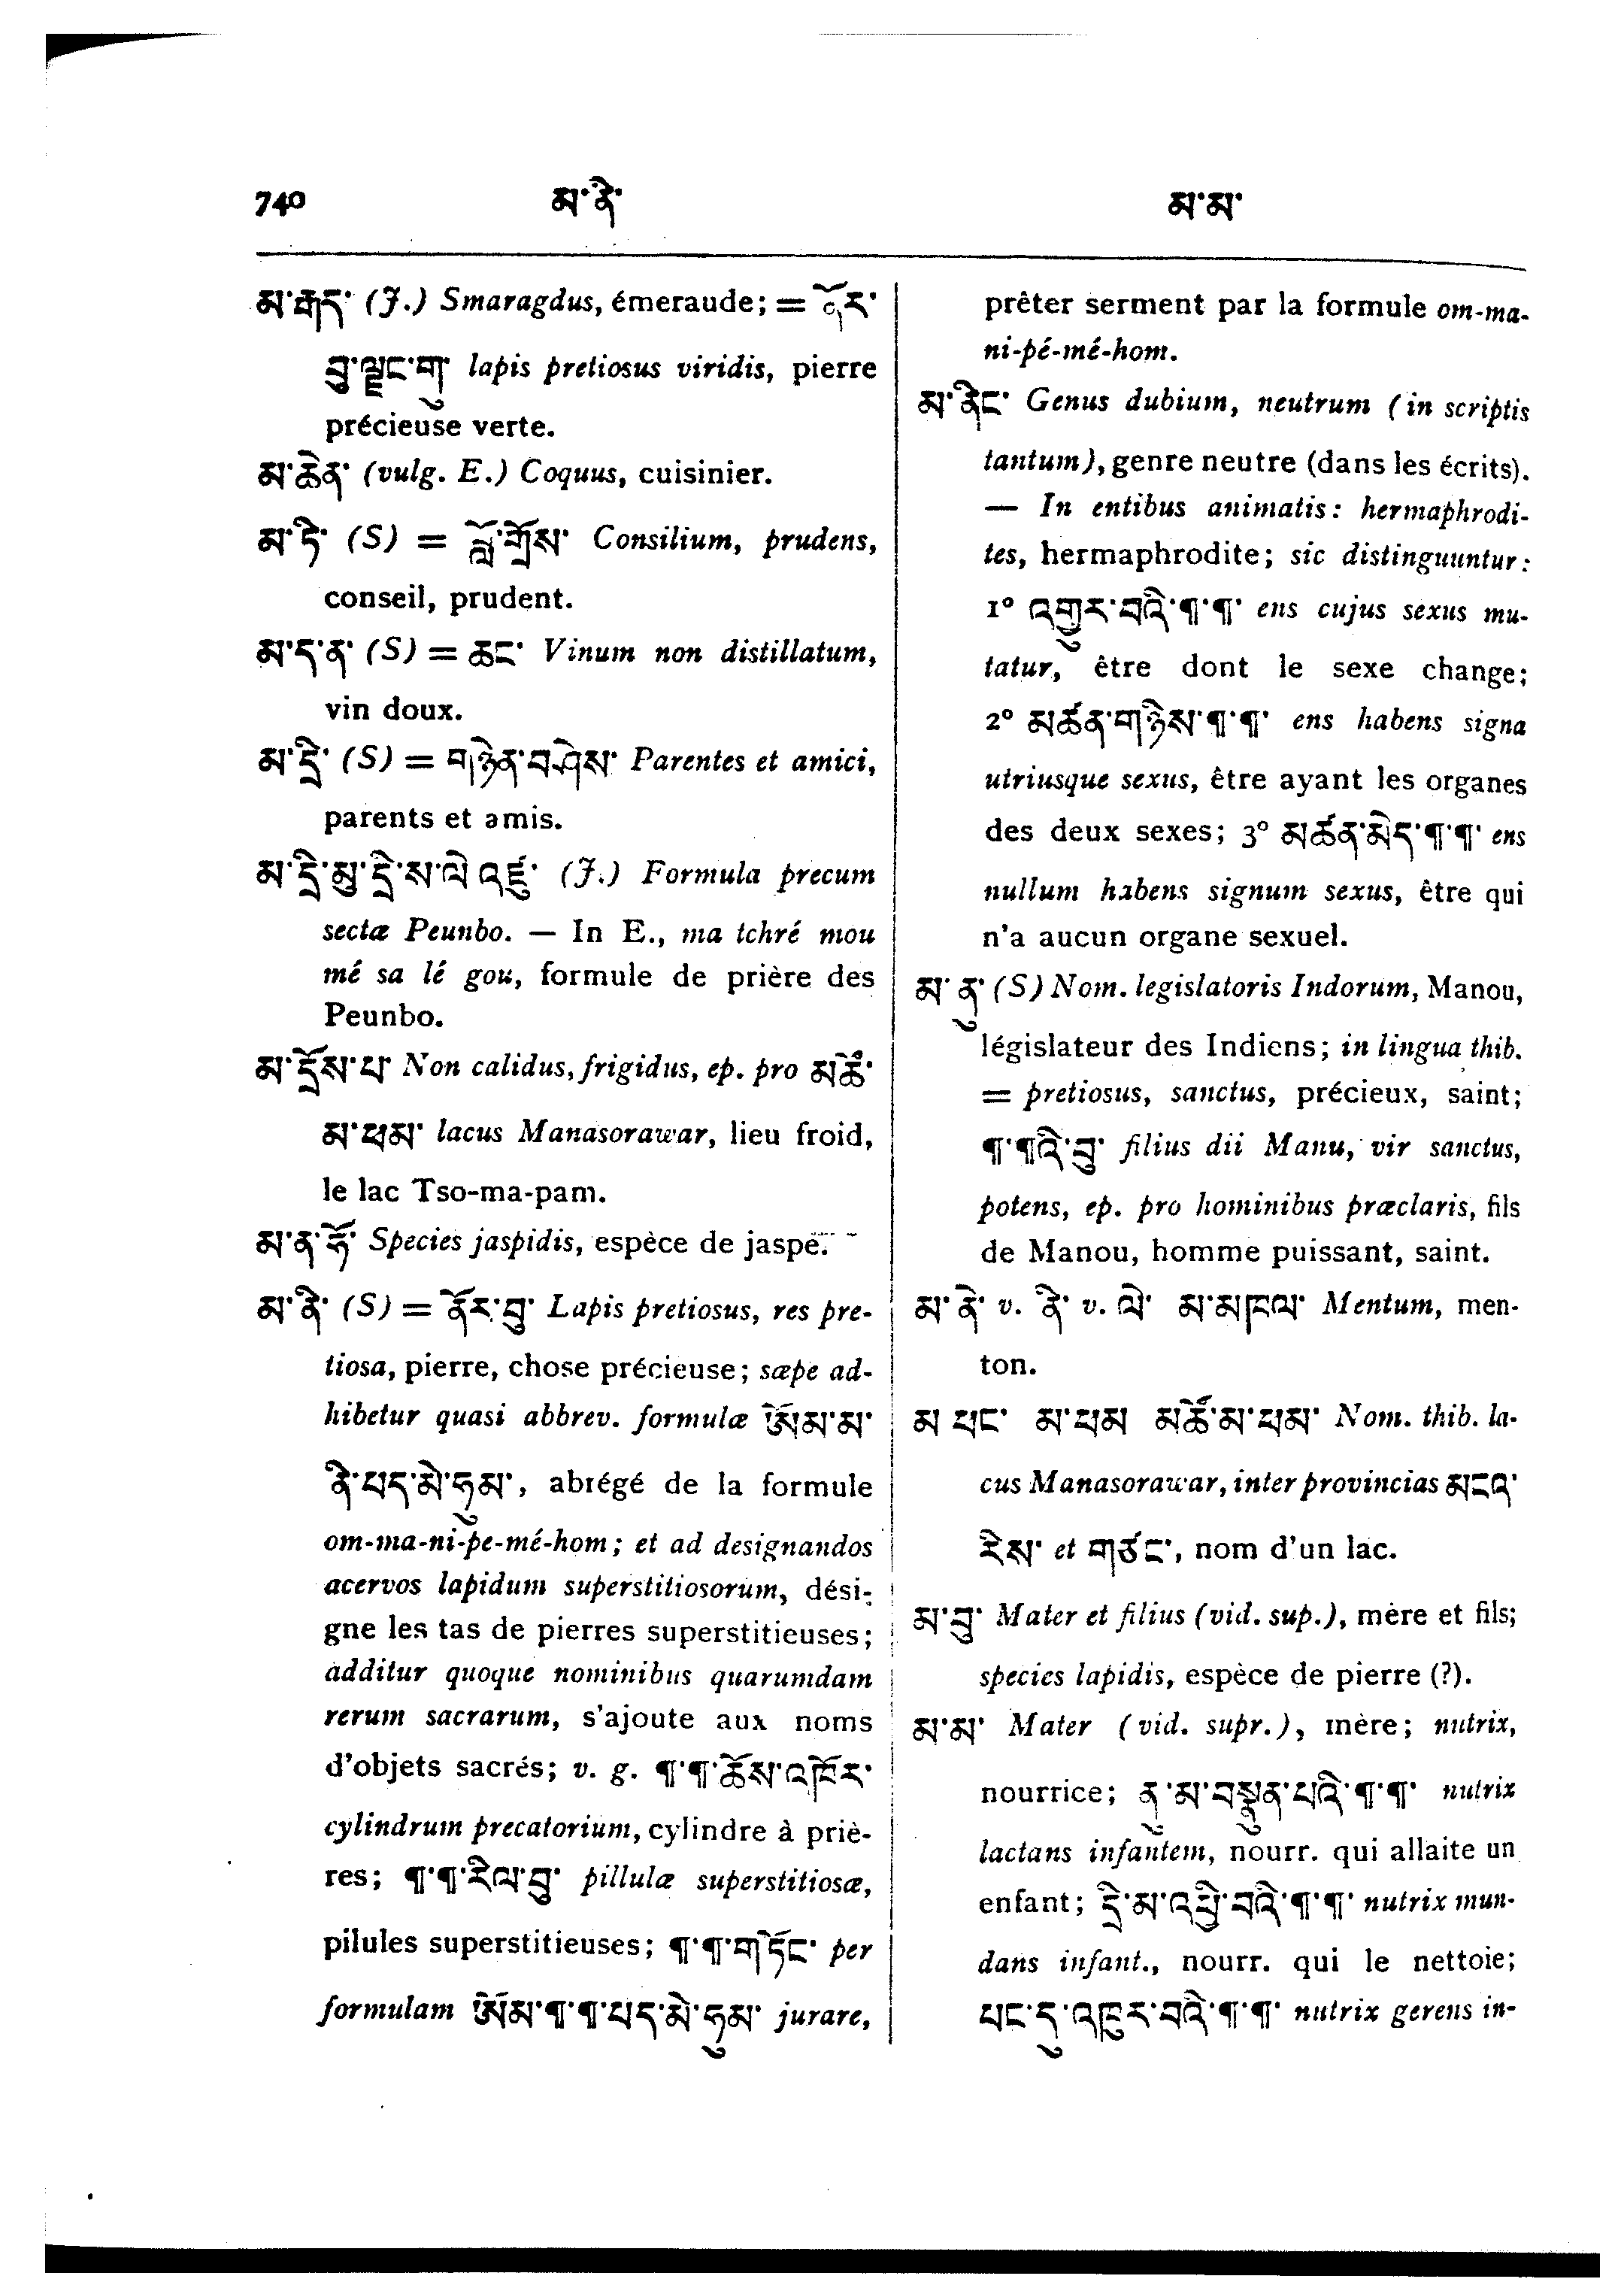 740 མ་ནི་ མ་མ་
མ་རྒད་ (J.) Smaragdus, émeraude; = ནོར་
བུ་ལྗང་གུ་ lapis pretiosus viridis, pierre
précieuse verte.
མ་ཆེན་ (vulg. E.) Coquus, cuisinier.
མ་ཏི་ (S) = བློ་གྲོས་ Consilium, prudens,
conseil, prudent.
མ་ད་ན་ (S) = ཆང་ Vinum non distillatum,
vin doux.
མ་དྲི་ (S) = གཉེན་བཤེས་ Parentes et amici,
parents et amis.
མ་དྲི་མུ་དྲེ་ས་ལེ་འཛུ་ (J.) Formula precum
sectæ Peunbo. — In E., ma tchré mou
mé sa lé gou, formule de prière des
Peunbo.
མ་དྲོས་པ་ Non calidus, frigidus, ep. pro མཚོ་
མ་ཕམ་ lacus Manasorawar, lieu froid,
le lac Tso-ma-pam.
མ་ན་ཧོ་ Species jaspidis, espèce de jaspe.
མ་ནི་ (S) = ནོར་བུ་ Lapis pretiosus, res pre-
tiosa, pierre, chose précieuse; sæpe ad-
hibetur quasi abbrev. formulæ ཨོཾ་མ་
ནི་པད་མེ་ཧུམ་, abrégé de la formule
om-ma-ni-pe-mé-hom; et ad designandos
acervos lapidum superstitiosorum, dési-
gne les tas de pierres superstitieuses;
additur quoque nominibus quarumdam
rerum sacrarum, s'ajoute aux noms
d'objets sacrés; v. g. ¶་¶་ཆོས་འཁོར་
cylindrum precatorium, cylindre à priè-
res; ¶་¶་རིལ་བུ་ pillulæ superstitiosæ,
pilules superstitieuses; ¶་¶་གཏོང་ per
formulam ཨོཾམ་¶་¶་པད་མེ་ཧུམ་ jurare,
prêter serment par la formule om-ma-
ni-pé-mé-hom.
མ་ནིང་ Genus dubium, neutrum (in scriptis
tantum), genre neutre (dans les écrits).
— In entibus animatis: hermaphrodi-
tes, hermaphrodite; sic distinguuntur:
1° འགྱུར་བའི་¶་¶་ ens cujus sexus mu-
tatur, être dont le sexe change;
2° མཚན་གཉིས་¶་¶་ ens habens signa
utriusque sexus, être ayant les organes
des deux sexes; 3° མཚན་མེད་¶་¶་ ens
nullum habens signum sexus, être qui
n'a aucun organe sexuel.
མ་ནུ་ (S) Nom. legislatoris Indorum, Manou,
législateur des Indiens; in lingua thib.
= pretiosus, sanctus, précieux, saint;
¶་¶འི་བུ་ filius dii Manu, vir sanctus,
potens, ep. pro hominibus præclaris, fils
de Manou, homme puissant, saint.
མ་ནེ་ v. ནི་ v. ལེ་ མ་མཁལ་ Mentum, men-
ton.
མ་པང་ མ་ཕམ མཚོ་མ་ཕམ་ Nom. thib. la-
cus Manasorawar, inter provincias མངའ་
རིས་ et གཙང་, nom d'un lac.
མ་བུ་ Mater et filius (vid. sup.), mère et fils;
species lapidis, espèce de pierre (?).
མ་མ་ Mater (vid. supr.), mère; nutrix,
nourrice; ནུ་མ་བསྣུན་པའི་¶་¶་ nutrix
lactans infantem, nourr. qui allaite un
enfant; དྲི་མ་འཕྱི་བའི་¶་¶་ nutrix mun-
dans infant., nourr. qui le nettoie;
པང་དུ་འཁུར་བའི་¶་¶་ nutrix gerens in-